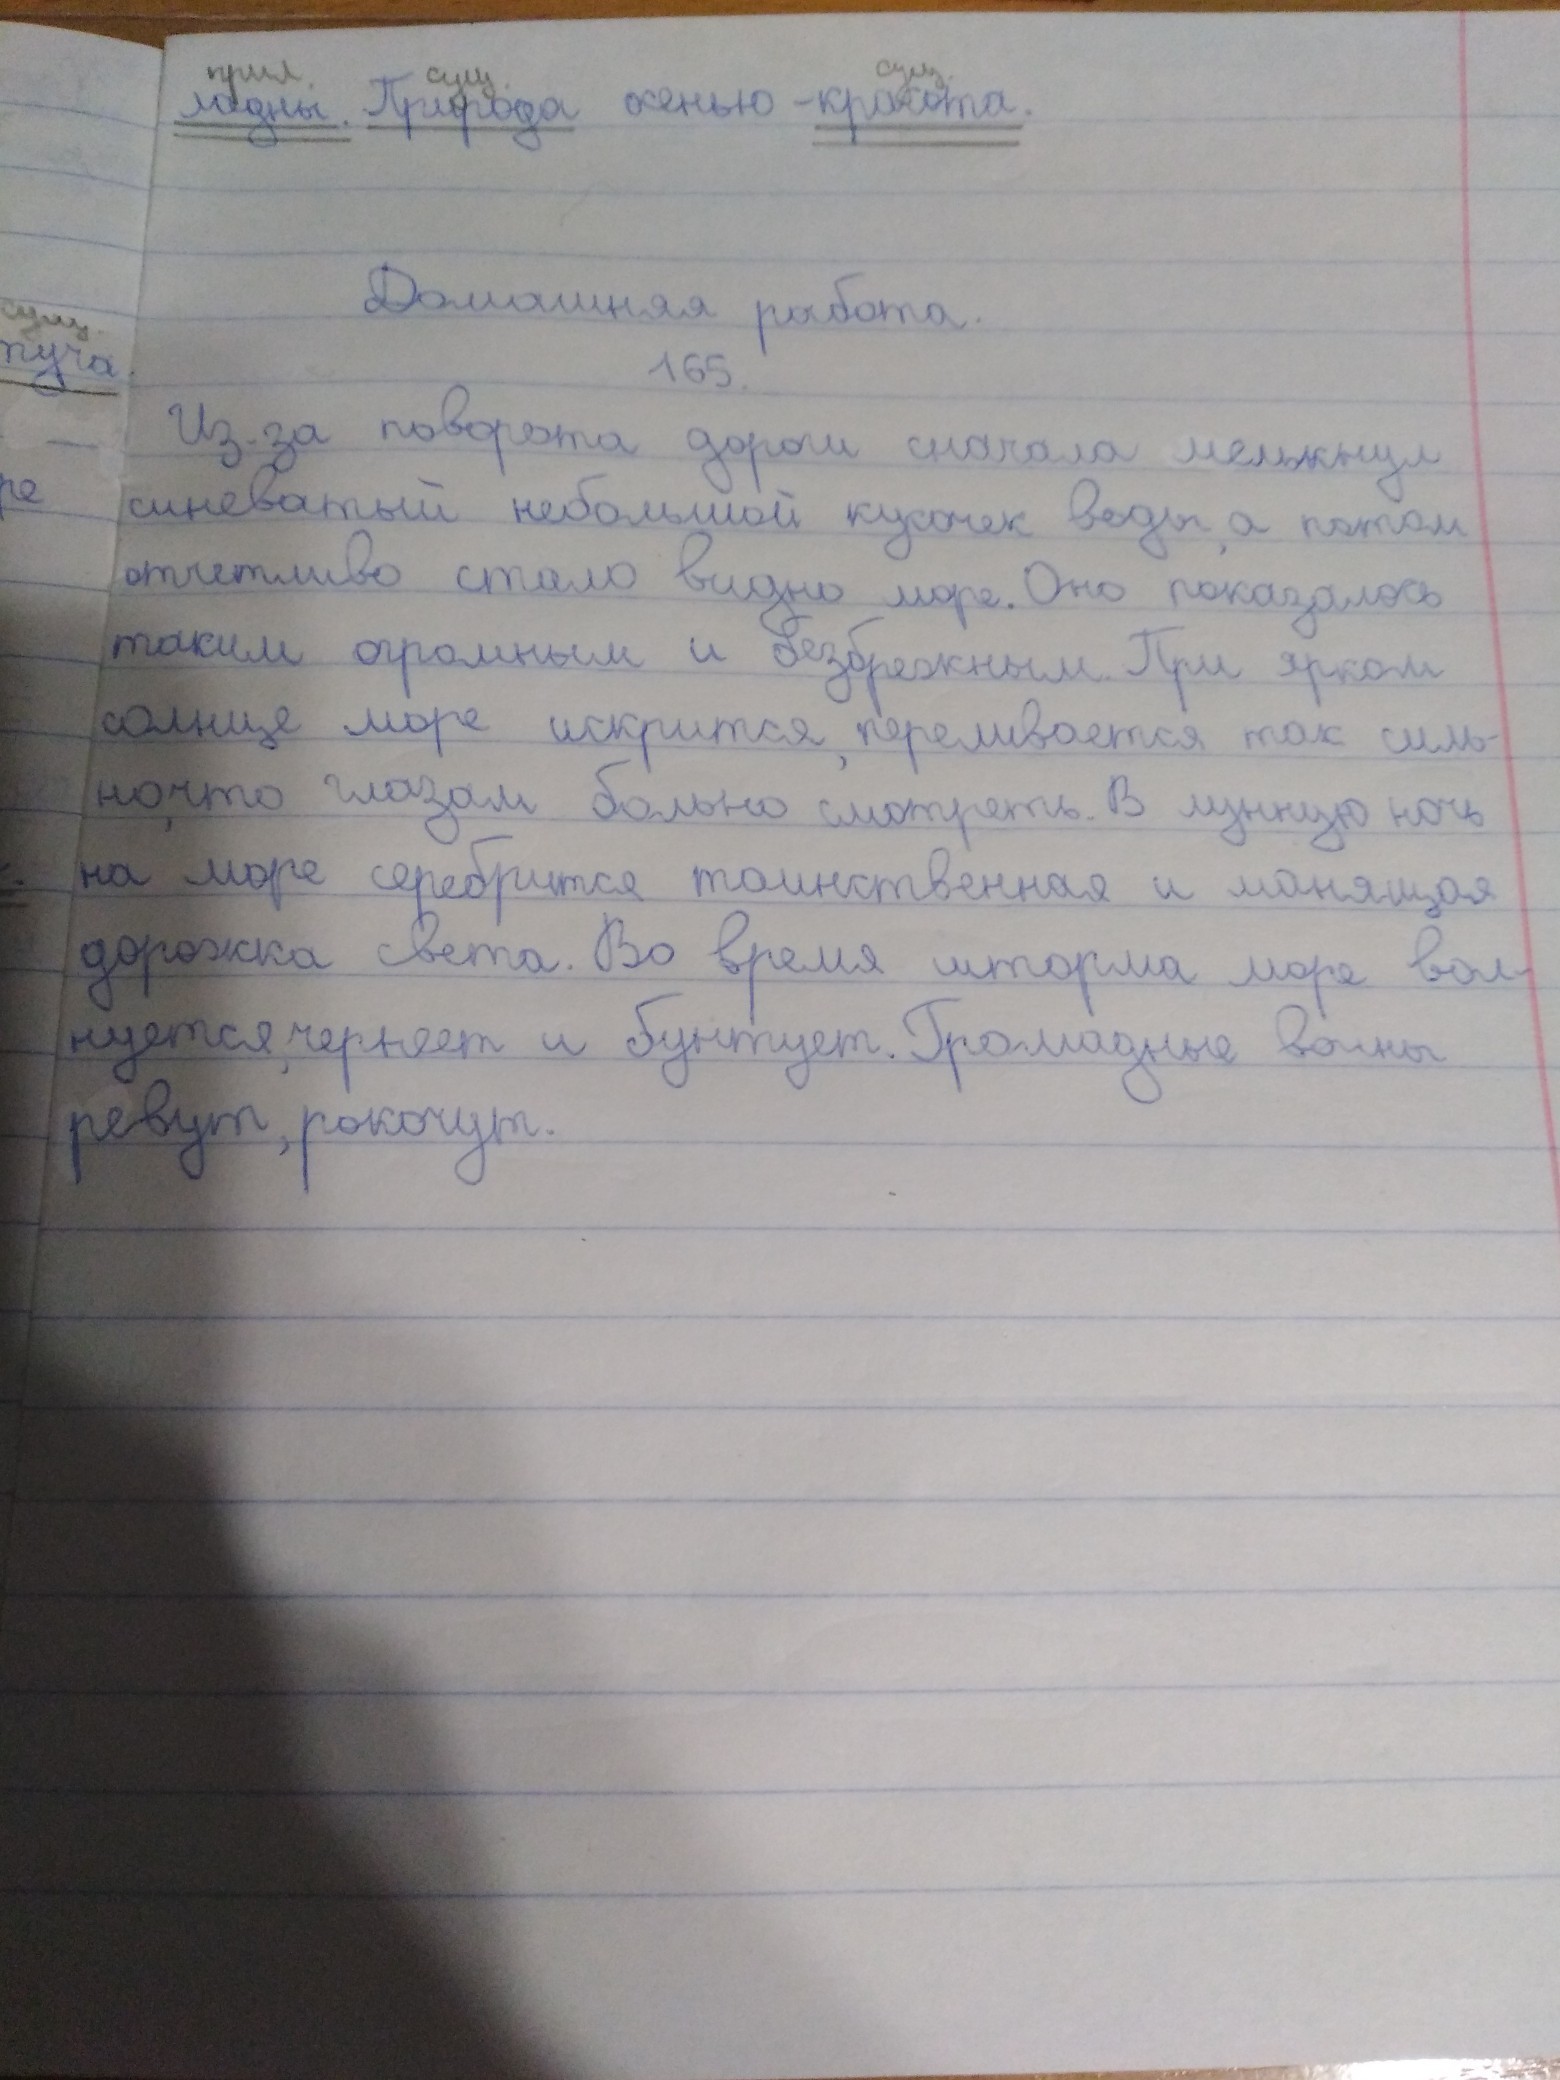 прил. сущ. сущ.
ладны. Природа осенью - красота.
Домашняя работа.
165.
сущ.
туча.
ре
Из-за поворота дороги сначала мелькнул
синеватый небольшой кусочек воды, а потом
отчетливо стало видно море. Оно показалось
таким огромным и безбрежным. При ярком
солнце море искрится, переливается так силь-
но, что глазам больно смотреть. В лунную ночь
на море серебрится таинственная и манящая
дорожка света. Во время шторма море вол-
нуется, чернеет и бунтует. Громадные волны
ревут, рокочут.